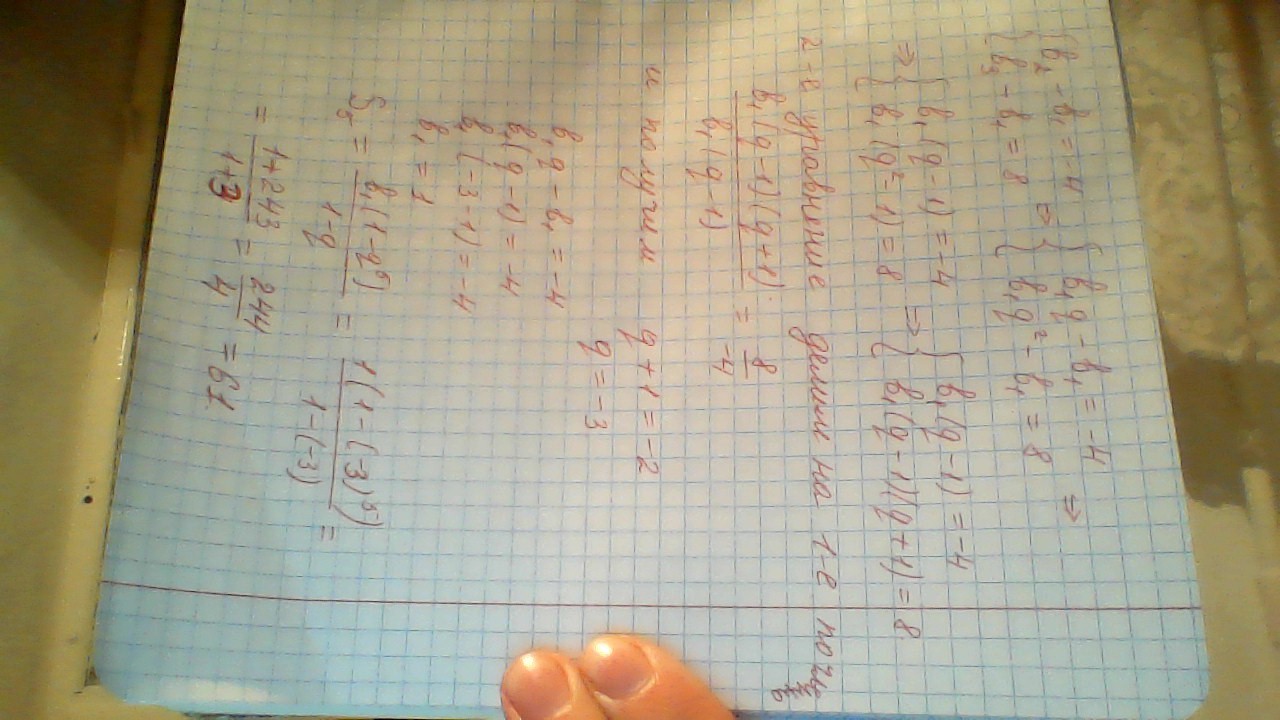 { b₂ - b₁ = -4 ⇒ { b₁q - b₁ = -4 ⇒
{ b₃ - b₁ = 8 { b₁q² - b₁ = 8
⇒ { b₁(q - 1) = -4 ⇒ { b₁(q - 1) = -4
{ b₁(q² - 1) = 8 { b₁(q - 1)(q + 1) = 8
2-е уравнение делим на 1-е
b₁(q - 1)(q + 1) / b₁(q - 1) = 8 / -4
и получим q + 1 = -2
q = -3
b₁q - b₁ = -4
b₁(q - 1) = -4
b₁(-3 - 1) = -4
b₁ = 1
S₅ = b₁(1 - q⁵) / 1 - q = 1(1 - (-3)⁵) / 1 - (-3) =
= 1 + 243 / 1 + 3 = 244 / 4 = 61